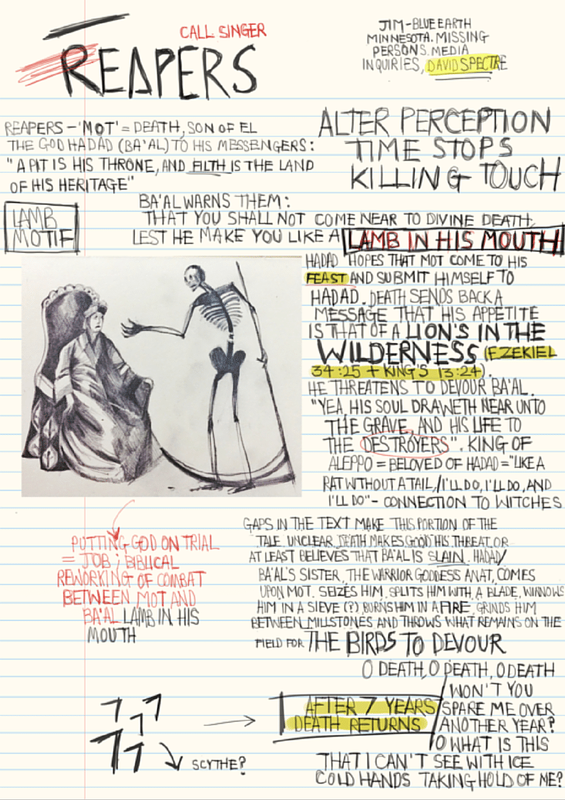 CALL SINGER
REAPERS
JIM-BLUE EARTH
MINNESOTA. MISSING
PERSONS. MEDIA
INQUIRIES, DAVID SPECTRE
REAPERS - 'MOT' = DEATH, SON OF EL
THE GOD HADAD (BA'AL) TO HIS MESSENGERS:
"A PIT IS HIS THRONE, AND FILTH IS THE LAND
OF HIS HERITAGE"
ALTER PERCEPTION
TIME STOPS
KILLING TOUCH
LAMB
MOTIF
BA'AL WARNS THEM:
THAT YOU SHALL NOT COME NEAR TO DIVINE DEATH.
LEST HE MAKE YOU LIKE A LAMB IN HIS MOUTH
HADAD HOPES THAT MOT COME TO HIS
FEAST AND SUBMIT HIMSELF TO
HADAD. DEATH SENDS BACK A
MESSAGE THAT HIS APPETITE
IS THAT OF A LION'S IN THE
WILDERNESS (EZEKIEL
34:25 + KING'S 13:24).
HE THREATENS TO DEVOUR BA'AL.
"YEA, HIS SOUL DRAWETH NEAR UNTO
THE GRAVE, AND HIS LIFE TO
THE DESTROYERS". KING OF
ALEPPO = BELOVED OF HADAD = "LIKE A
RAT WITHOUT A TAIL, / I'LL DO, I'LL DO, AND
I'LL DO" - CONNECTION TO WITCHES
PUTTING GOD ON TRIAL
= JOB; BIBLICAL
REWORKING OF COMBAT
BETWEEN MOT AND
BA'AL LAMB IN HIS
MOUTH
GAPS IN THE TEXT MAKE THIS PORTION OF THE
TALE UNCLEAR. DEATH MAKES GOOD HIS THREAT OR
AT LEAST BELIEVES THAT BA'AL IS SLAIN. HADAD/
BA'AL'S SISTER, THE WARRIOR GODDESS ANAT, COMES
UPON MOT, SEIZES HIM, SPLITS HIM WITH A BLADE, WINNOWS
HIM IN A SIEVE (?) BURNS HIM IN A FIRE, GRINDS HIM
BETWEEN MILLSTONES AND THROWS WHAT REMAINS ON THE
FIELD FOR THE BIRDS TO DEVOUR
O DEATH, O DEATH, O DEATH
WON'T YOU
SPARE ME OVER
ANOTHER YEAR?
O WHAT IS THIS
THAT I CAN'T SEE WITH ICE
COLD HANDS TAKING HOLD OF ME?
AFTER 7 YEARS
DEATH RETURNS
7 7
7
77
SCYTHE?